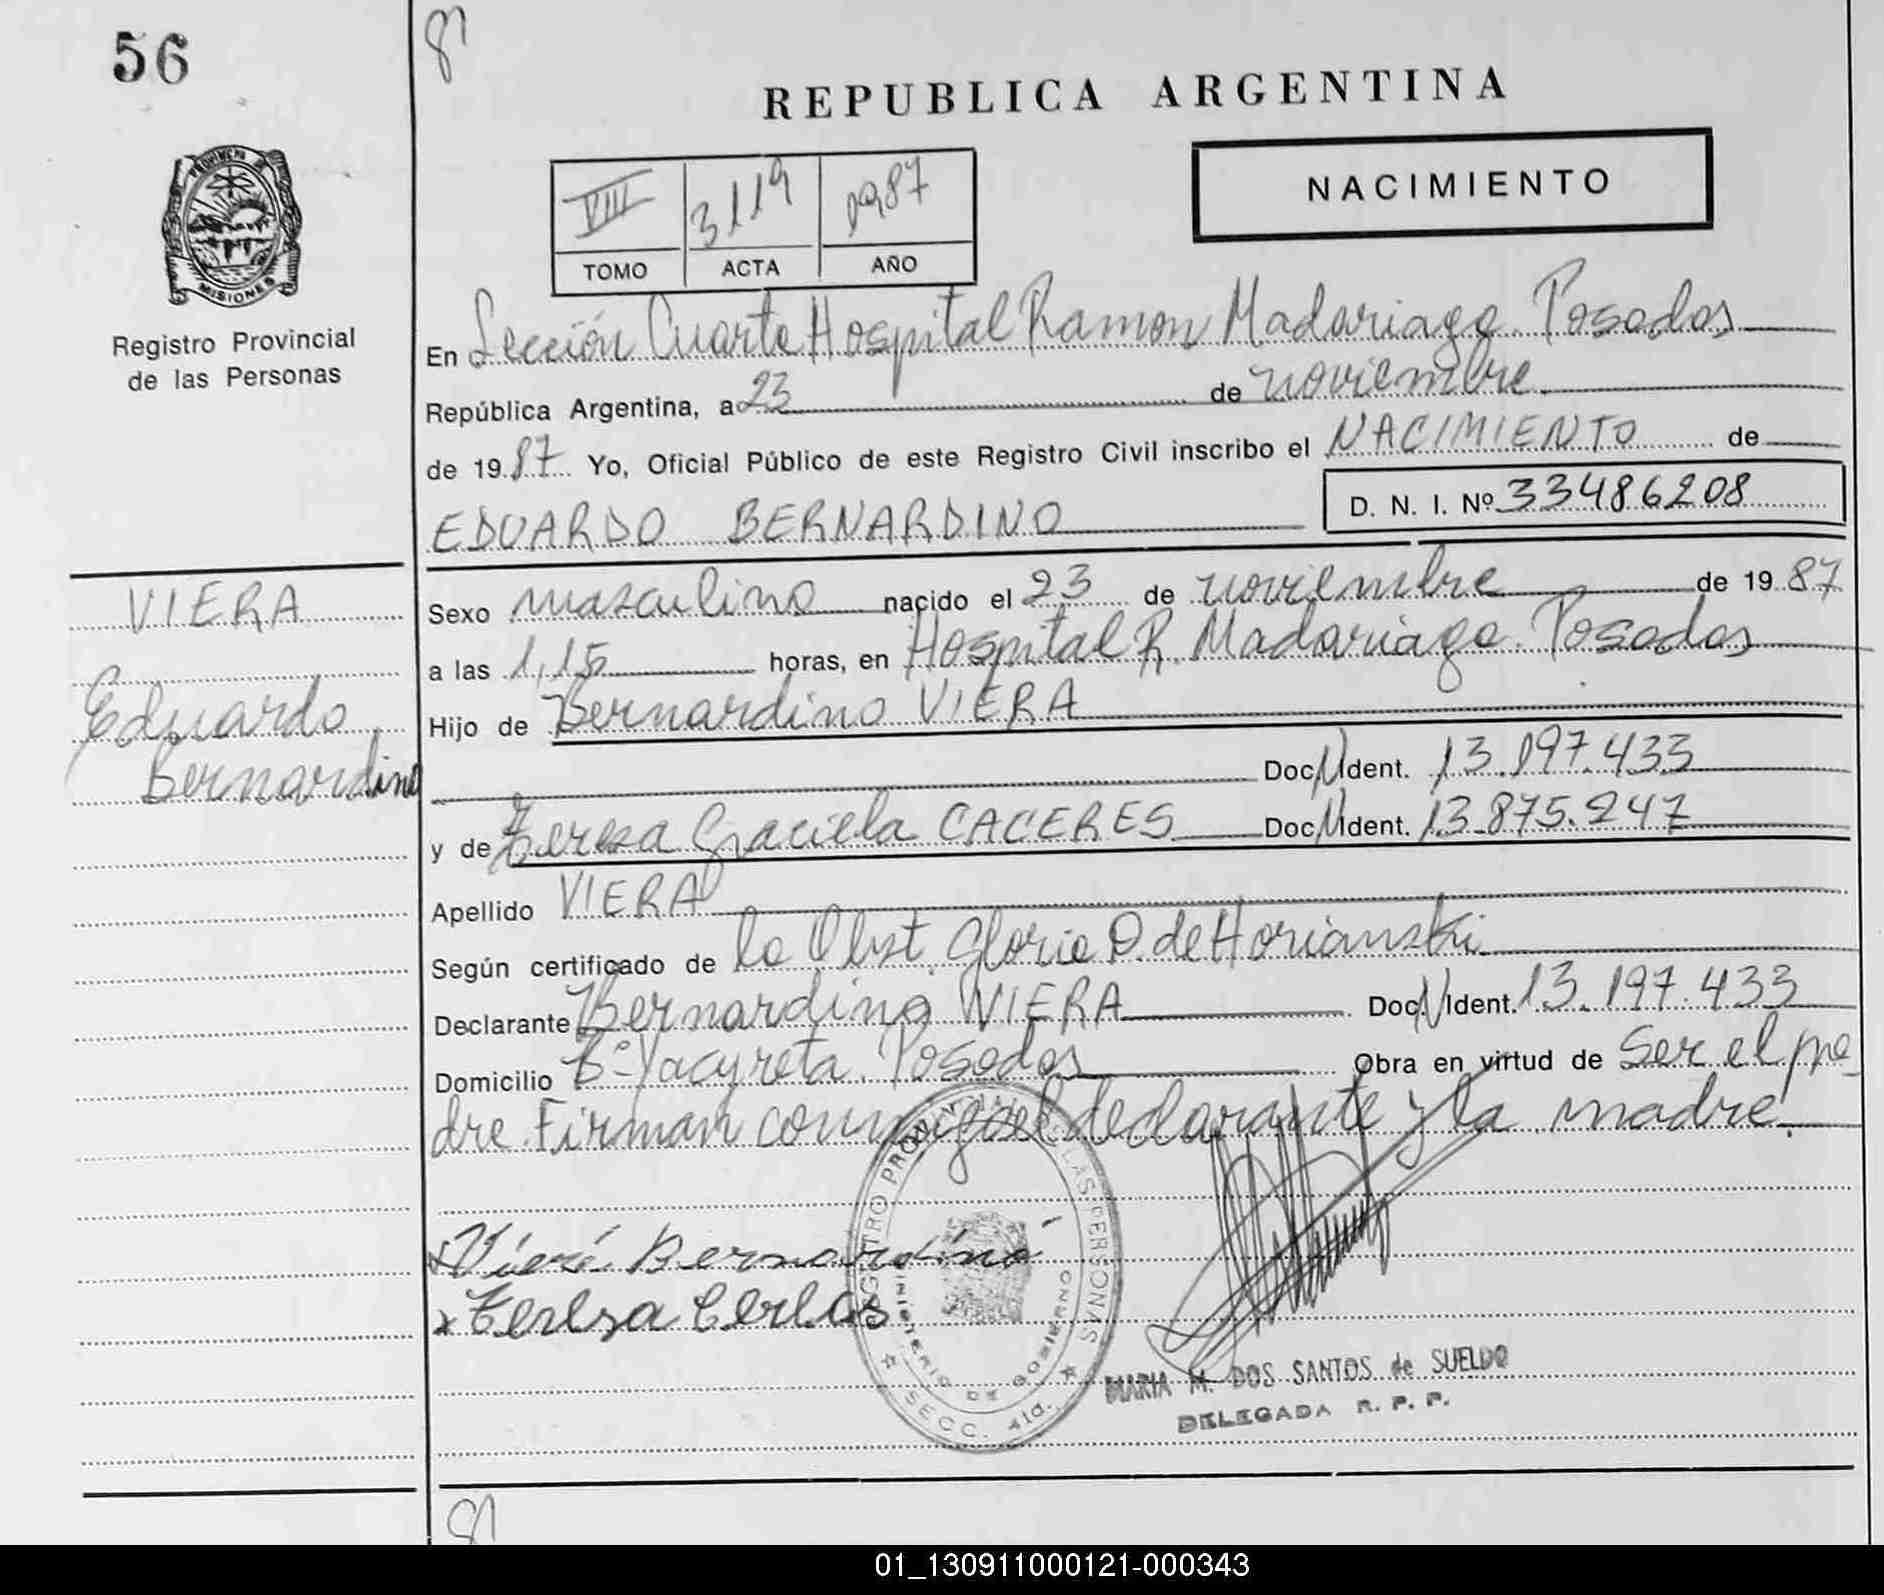 56
87
REPUBLICA ARGENTINA
NACIMIENTO
VIII 3119 1987
TOMO ACTA AÑO
PROVINCIA DE
MISIONES
Registro Provincial
de las Personas
En Sección Cuarta Hospital Ramon Madariaga. Posadas
República Argentina, a 23 de noviembre
de 1987 Yo, Oficial Público de este Registro Civil inscribo el NACIMIENTO de
EDUARDO BERNARDINO D. N. I. Nº 33486208
VIERA
Eduardo
Bernardino
Sexo masculino nacido el 23 de noviembre de 1987
a las 1,15 horas, en Hospital R. Madariaga. Posadas
Hijo de Bernardino VIERA
Doc. N Ident. 13.197.433
y de Teresa Graciela CACERES Doc. N Ident. 13.875.247
Apellido VIERA
Según certificado de la Obst. Gloria D. de Horianski
Declarante Bernardino VIERA Doc. N Ident. 13.197.433
Domicilio Bº Yacyreta. Posadas Obra en virtud de Ser el pa-
dre. Firman conmigo el declarante y la madre.
Viera Bernardino
x Teresa
REGISTRO PROVINCIAL DE LAS PERSONAS
MINISTERIO DE GOBIERNO
SECC. 4ta.
MARIA M. DOS SANTOS de SUELDO
DELEGADA R. P. P.
01_130911000121-000343